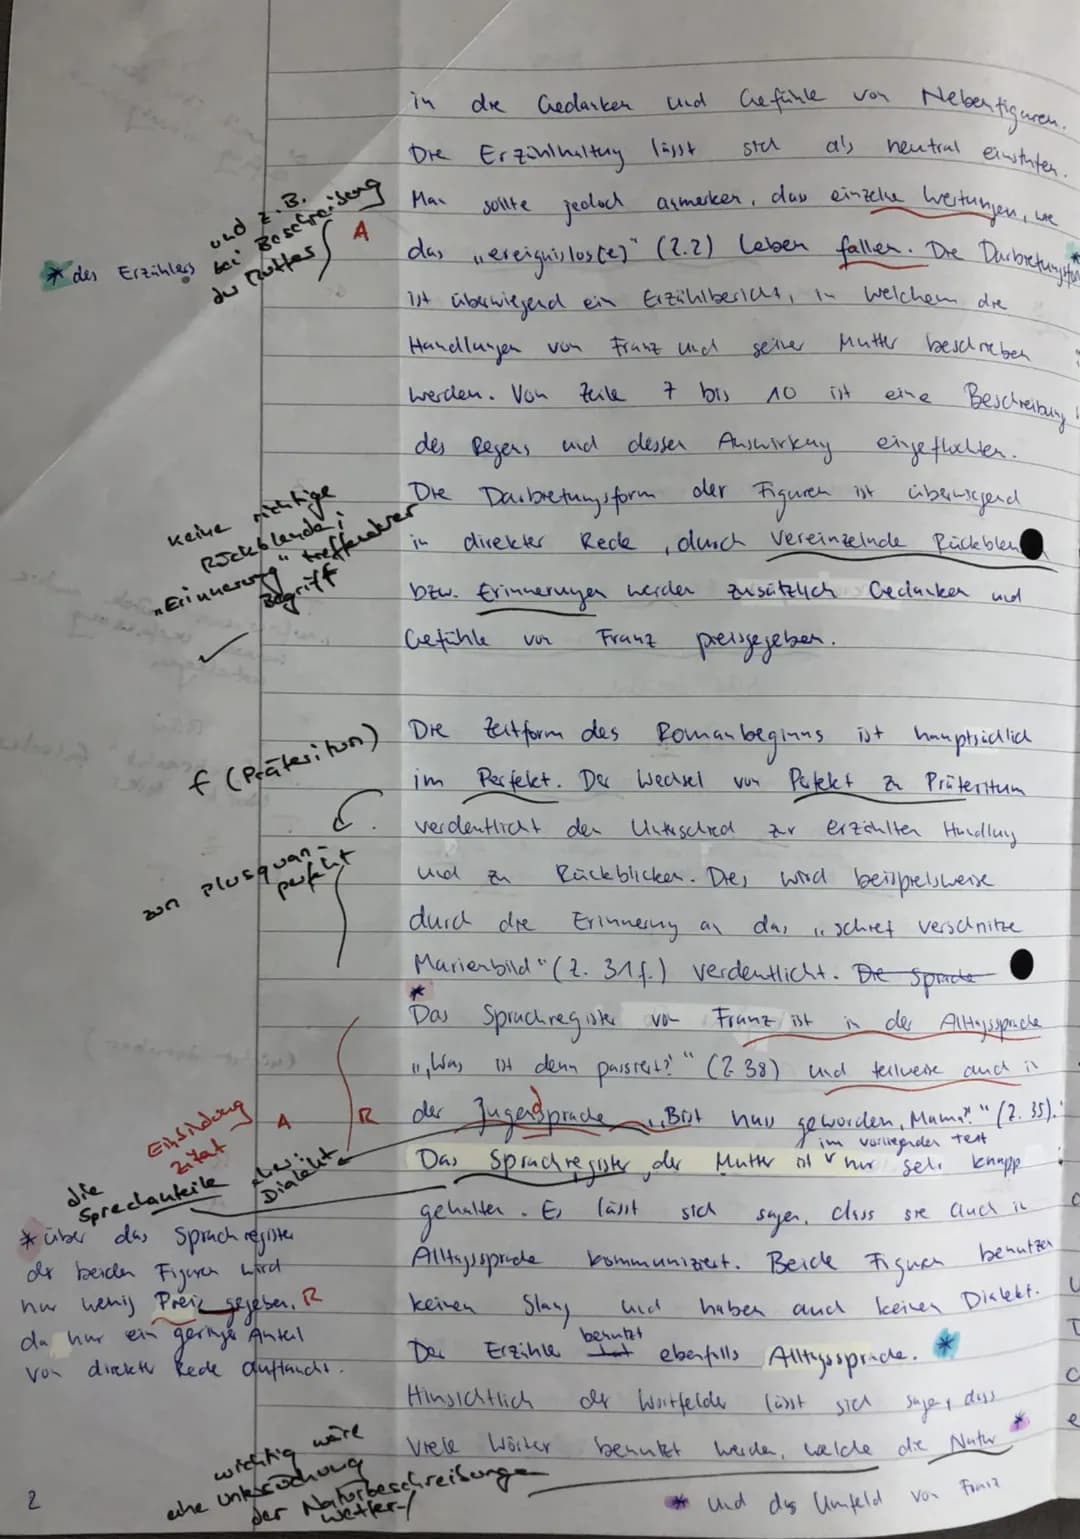 in die Gedanken und Gefühle von Nebenfiguren.
Die Erzählhaltung lässt sich als neutral einstufen.
und z.B. bei Beschreibung des Muttes
Man sollte jedoch anmerken, dass einzelne Wertungen, wie
A
* des Erzählers
das „ereignislos[e]" (Z.2) Leben fallen. Die Darbietungsform
ist überwiegend ein Erzählbericht, in welchem die
Handlungen von Franz und seiner Mutter beschrieben
werden. Von Zeile 7 bis 10 ist eine Beschreibung
des Regens und dessen Auswirkung eingeflochten.
keine richtige Rückblende; „Erinnerung" treffenderer Begriff
Die Darbietungsform der Figuren ist überwiegend
in direkter Rede, durch vereinzelnde Rückblen
bzw. Erinnerungen werden zusätzlich Gedanken und
Gefühle von Franz preisgegeben.
f (Präteritum)
Die Zeitform des Romanbeginns ist hauptsächlich
im Perfekt. Der Wechsel von Perfekt zu Präteritum
verdeutlicht den Unterschied zur erzählten Handlung
zum Plusquamperfekt
und zu Rückblicken. Dies wird beispielsweise
durch die Erinnerung an das „schief verschnitzte
Marienbild" (Z. 31f.) verdeutlicht. Die Sprache
*
Das Sprachregister von Franz ist in der Alltagssprache
„„Was ist denn passiert?"" (Z 38) und teilweise auch in
Einbindung Zitat A R
der Jugendsprache „„Bist nass geworden, Mama?"" (Z. 35).
im vorliegenden Text
die Sprechanteile
Dialekt
Das Sprachregister der Mutter ist nur sehr knapp
gehalten. Es lässt sich sagen, dass sie auch in
Alltagssprache kommuniziert. Beide Figuren benutzen
keinen Slang und haben auch keinen Dialekt.
* über das Sprachregister
der beiden Figuren wird
nur wenig Preis gegeben, R
da nur ein geringer Anteil
von direkter Rede auftaucht.
benutzt
Der Erzähler hat ebenfalls Alltagssprache. *
Hinsichtlich der Wortfelder lässt sich sagen, dass
viele Wörter benutzt werden, welche die Natur *
wichtig wäre eine Untersuchung der Naturbeschreibung Wetter-/
* und das Umfeld von Franz
2